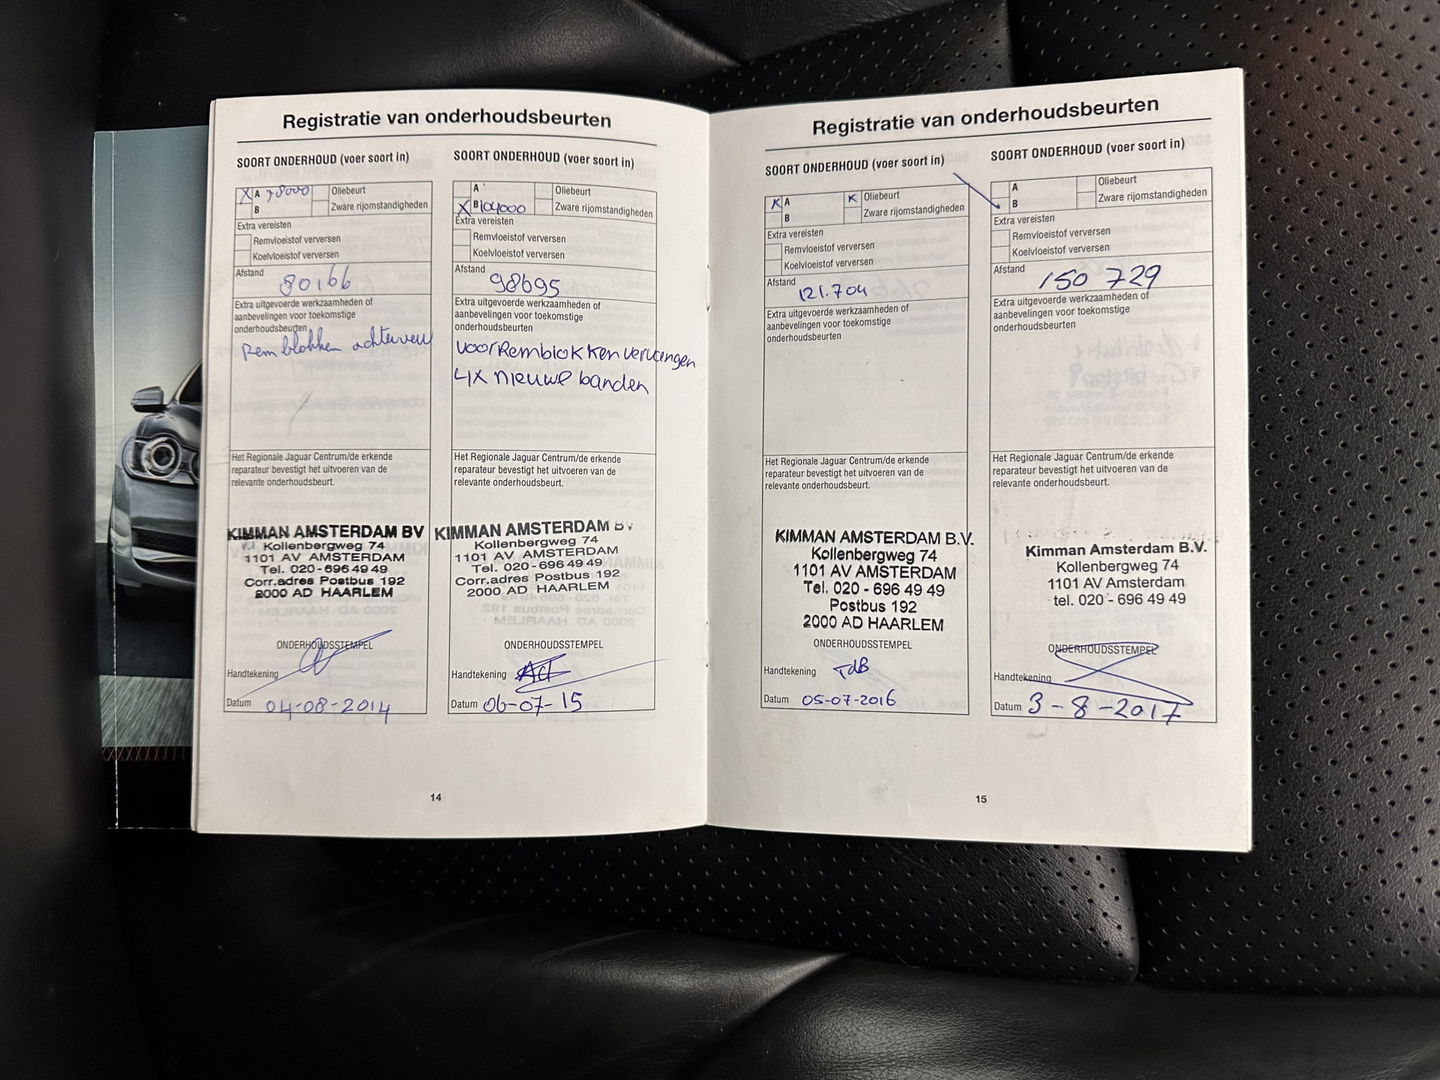 Registratie van onderhoudsbeurten
SOORT ONDERHOUD (voer soort in)
X A 78000 Oliebeurt
B Zware rijomstandigheden
Extra vereisten
Remvloeistof verversen
Koelvloeistof verversen
Afstand
80166
Extra uitgevoerde werkzaamheden of
aanbevelingen voor toekomstige
onderhoudsbeurten
Remblokken achter
Het Regionale Jaguar Centrum/de erkende
reparateur bevestigt het uitvoeren van de
relevante onderhoudsbeurt.
KIMMAN AMSTERDAM BV
Kollenbergweg 74
1101 AV AMSTERDAM
Tel. 020-696 49 49
Corr.adres Postbus 192
2000 AD HAARLEM
ONDERHOUDSSTEMPEL
Handtekening
Datum 04-08-2014
SOORT ONDERHOUD (voer soort in)
A Oliebeurt
X B 104000 Zware rijomstandigheden
Extra vereisten
Remvloeistof verversen
Koelvloeistof verversen
Afstand
98695
Extra uitgevoerde werkzaamheden of
aanbevelingen voor toekomstige
onderhoudsbeurten
voorRemblokken vervangen
4x nieuwe banden
Het Regionale Jaguar Centrum/de erkende
reparateur bevestigt het uitvoeren van de
relevante onderhoudsbeurt.
KIMMAN AMSTERDAM BV
Kollenbergweg 74
1101 AV AMSTERDAM
Tel. 020-696 49 49
Corr.adres Postbus 192
2000 AD HAARLEM
ONDERHOUDSSTEMPEL
Handtekening
Datum 06-07-15
14
Registratie van onderhoudsbeurten
SOORT ONDERHOUD (voer soort in)
X A X Oliebeurt
B Zware rijomstandigheden
Extra vereisten
Remvloeistof verversen
Koelvloeistof verversen
Afstand
121.704
Extra uitgevoerde werkzaamheden of
aanbevelingen voor toekomstige
onderhoudsbeurten
Het Regionale Jaguar Centrum/de erkende
reparateur bevestigt het uitvoeren van de
relevante onderhoudsbeurt.
KIMMAN AMSTERDAM B.V.
Kollenbergweg 74
1101 AV AMSTERDAM
Tel. 020 - 696 49 49
Postbus 192
2000 AD HAARLEM
ONDERHOUDSSTEMPEL
Handtekening TdB
Datum 05-07-2016
SOORT ONDERHOUD (voer soort in)
A Oliebeurt
B Zware rijomstandigheden
Extra vereisten
Remvloeistof verversen
Koelvloeistof verversen
Afstand
150 729
Extra uitgevoerde werkzaamheden of
aanbevelingen voor toekomstige
onderhoudsbeurten
Het Regionale Jaguar Centrum/de erkende
reparateur bevestigt het uitvoeren van de
relevante onderhoudsbeurt.
Kimman Amsterdam B.V.
Kollenbergweg 74
1101 AV Amsterdam
tel. 020 - 696 49 49
ONDERHOUDSSTEMPEL
Handtekening
Datum 3-8-2017
15